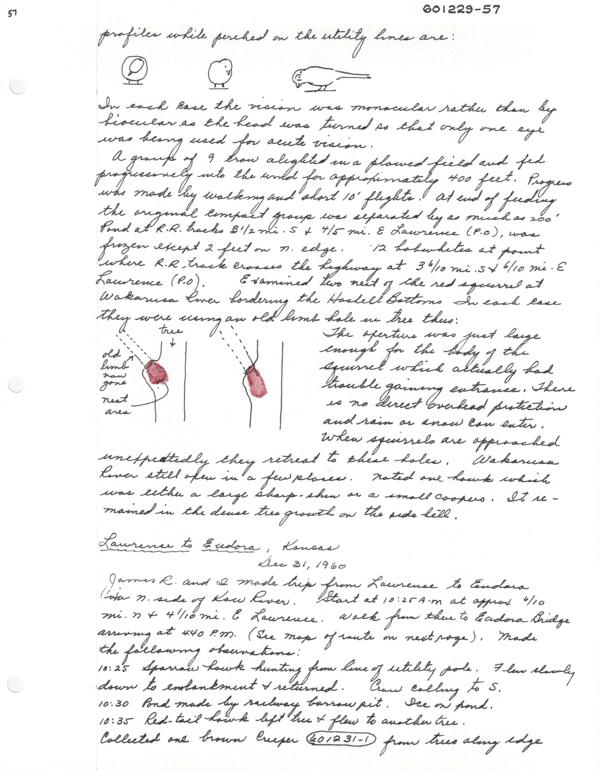 57
601229-57
profiles while perched on the utility lines are:
In each case the vision was monocular rather than by
biocular as the head was turned so that only one eye
was being used for acute vision.
A group of 9 crow alighted in a plowed field and fed
progressively into the wind for approximately 400 feet. Progress
was made by walking and short 10' flights. At end of feeding
the original compact group was separated by as much as 200'
Pond at R.R. tracks 3 1/2 mi. S & 4/5 mi. E Lawrence (P.O), was
frozen except 2 feet on n. edge. 12 bobwhites at point
where R.R. track crosses the highway at 3 6/10 mi. S & 6/10 mi. E
Lawrence (P.O). Examined two nest of the red squirrel at
Wakarusa River bordering the Haskell Bottoms In each case
they were using an old limb hole in tree thus:
tree
old
limb
now
gone
nest
area
The aperture was just large
enough for the body of the
squirrel which actually had
trouble gaining entrance. There
is no direct overhead protection
and rain or snow can enter.
When squirrels are approached
unexpectedly they retreat to these holes. Wakarusa
River still open in a few places. Noted one hawk which
was either a large sharp-shin or a small coopers. It re-
mained in the dense tree growth on the side hill.
Lawrence to Eudora, Kansas
Dec 31, 1960
James R. and I made trip from Lawrence to Eudora
via n. side of Kaw River. Start at 10:25 A.m at approx 6/10
mi. n & 4 1/10 mi. E Lawrence. Walk from there to Eudora Bridge
arriving at 440 P.M. (See map of route on next page). Made
the following observations:
10:25 Sparrow hawk hunting from line of utility pole. Flew slowly
down to embankment & returned. Crow calling to S.
10:30 Pond made by railway barrow pit. Ice on pond.
10:35 Red-tail hawk left tree & flew to another tree.
Collected one brown Creeper 601231-1 from trees along edge